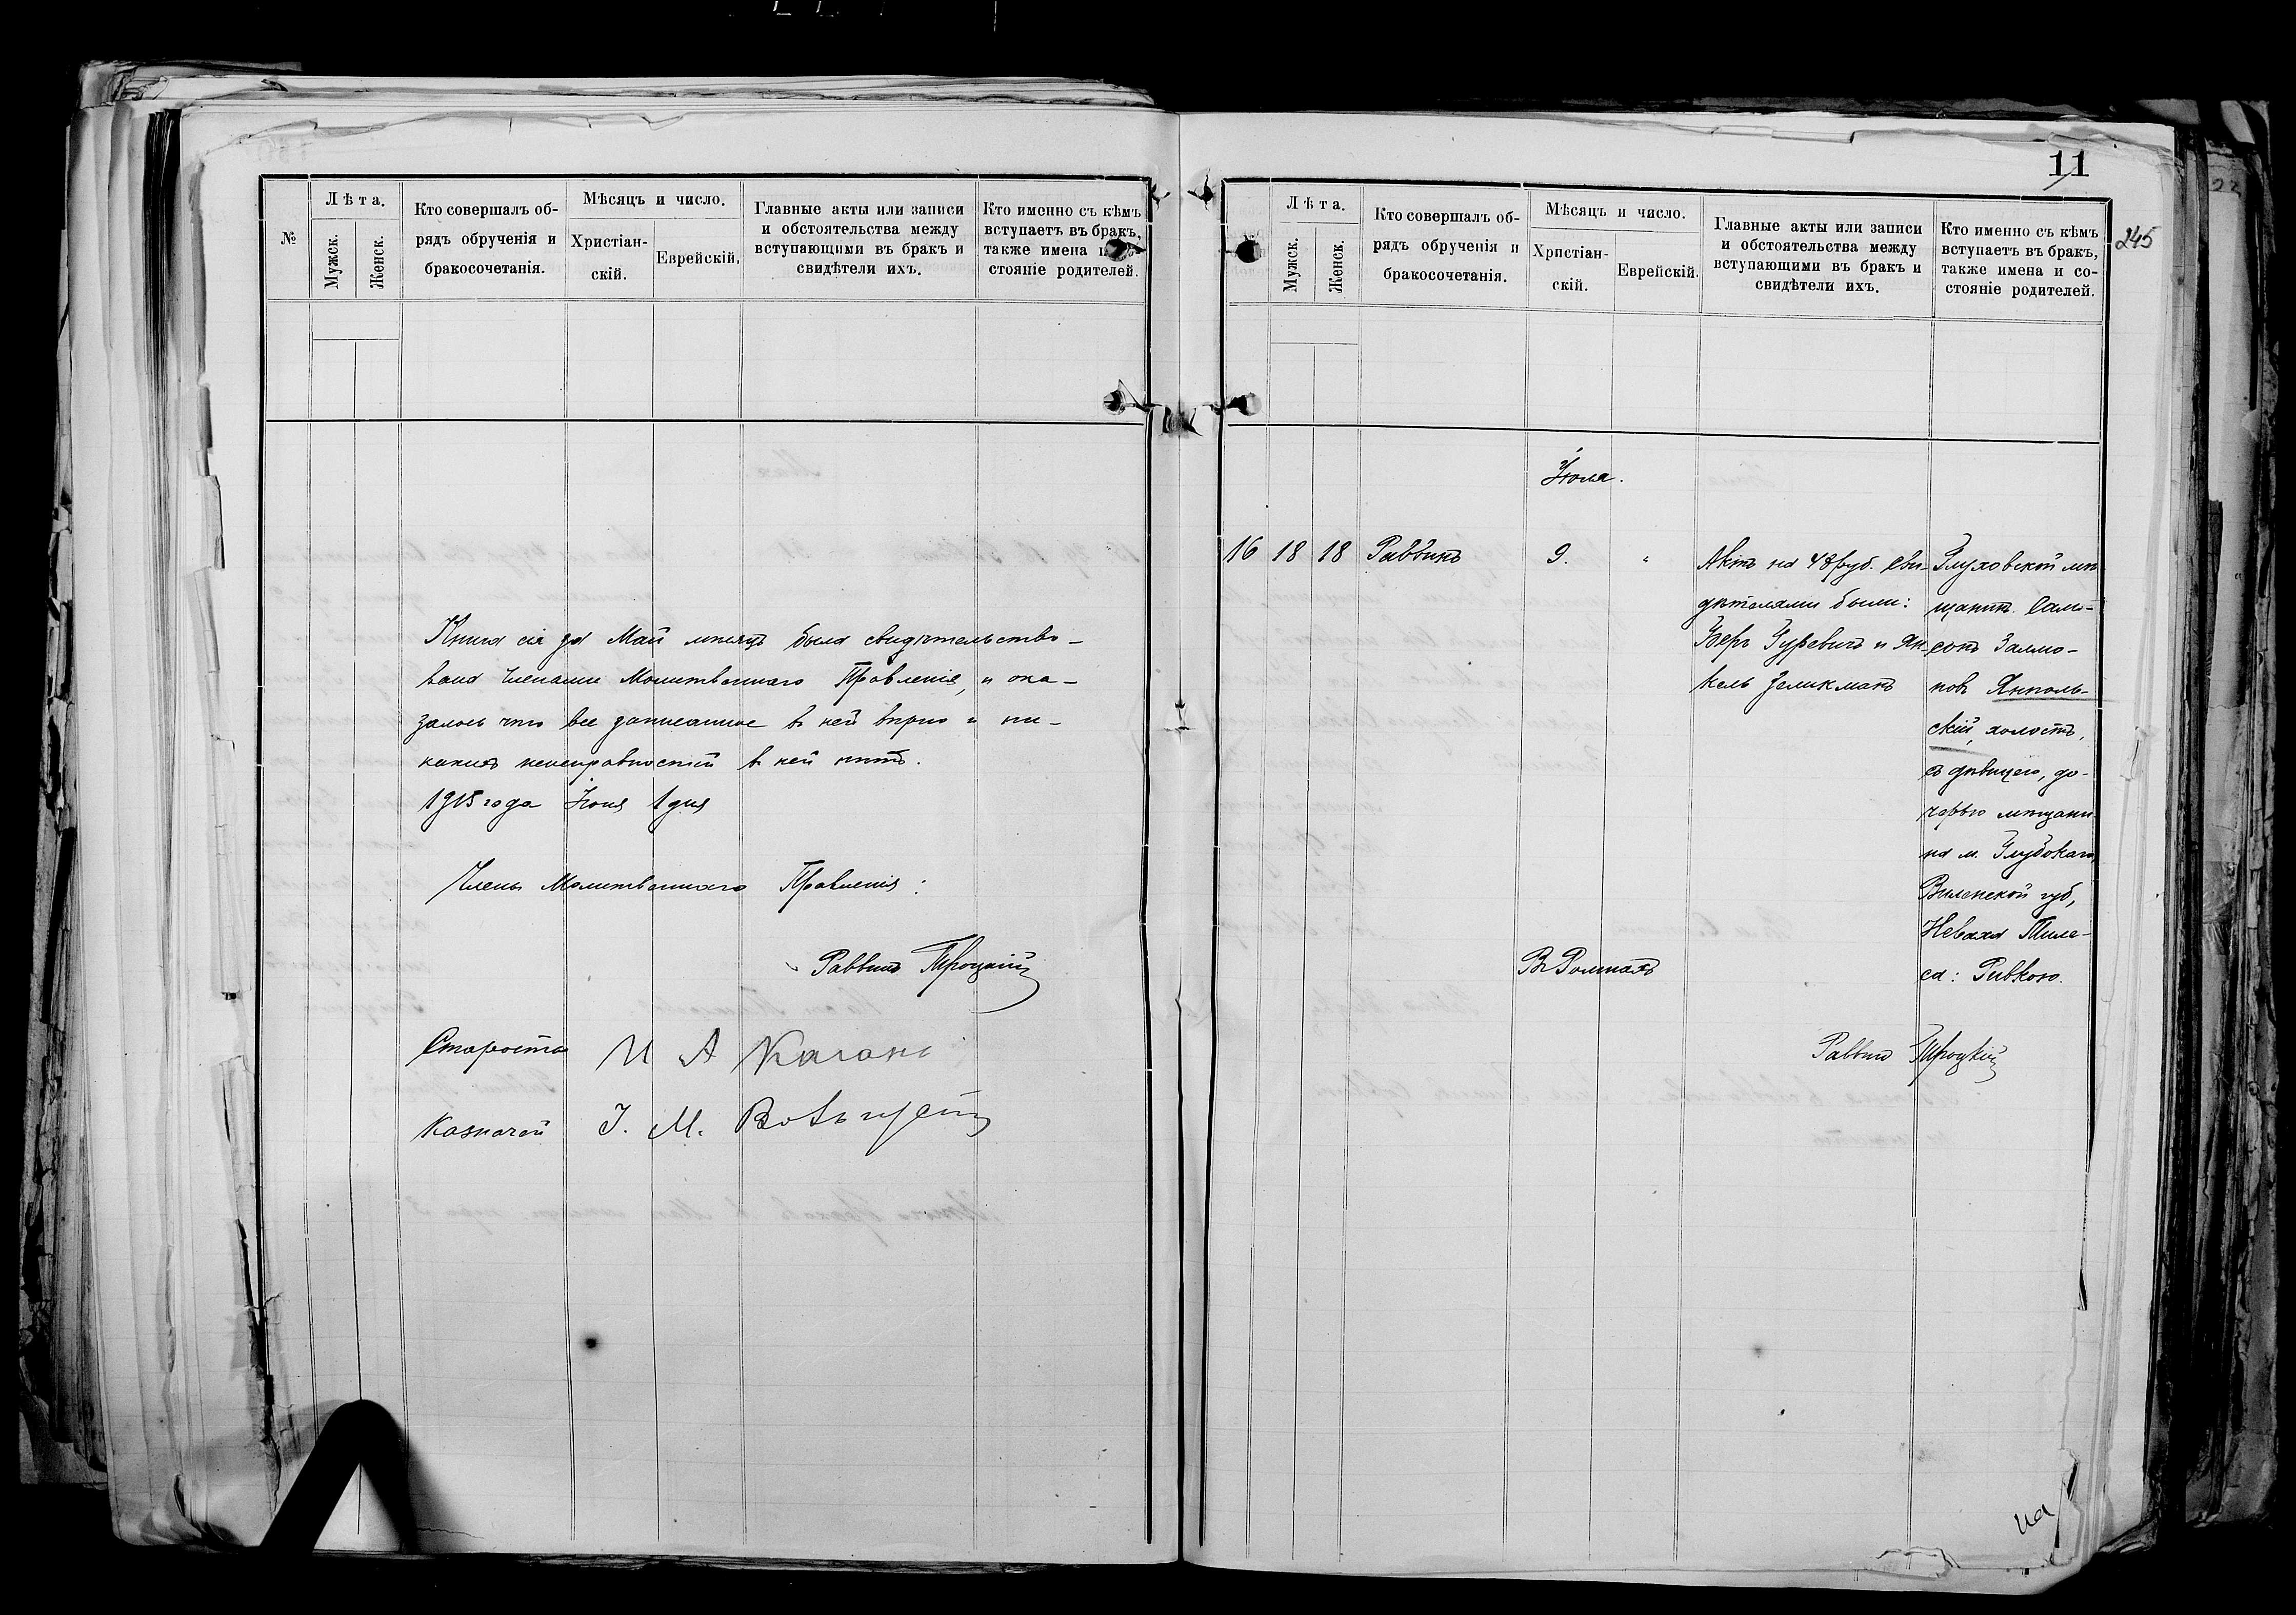 №
Лѣта.
Мужск.
Женск.
Кто совершалъ об-
рядъ обрученія и
бракосочетанія.
Мѣсяцъ и число.
Христіан-
скій.
Еврейскій.
Главные акты или записи
и обстоятельства между
вступающими въ бракъ и
свидѣтели ихъ.
Кто именно съ кѣмъ
вступаетъ въ бракъ,
также имена и со-
стояніе родителей.
Книга сія за Май мѣсяцъ была свидѣтельство-
вана Членами Молитвеннаго Правленія, и ока-
залось что все записанное въ ней вѣрно и ни-
какихъ неисправностей въ ней нѣтъ.
1915 года Іюня 1 дня
Члены Молитвеннаго Правленія:
Раввинъ Троцкій
Староста И А Каганъ
Казначей І. М.
11
245
Лѣта.
Мужск.
Женск.
Кто совершалъ об-
рядъ обрученія и
бракосочетанія.
Мѣсяцъ и число.
Христіан-
скій.
Еврейскій.
Главные акты или записи
и обстоятельства между
вступающими въ бракъ и
свидѣтели ихъ.
Кто именно съ кѣмъ
вступаетъ въ бракъ,
также имена и со-
стояніе родителей.
Іюля.
16 18 18 Раввинъ 9. "
Актъ на 48 руб. Сви-
дѣтелями были:
Гуревичъ и Ян-
кель Зеликманъ
Глуховской мѣ-
щанинъ Сам-
сонъ Залмо-
новъ Янполь-
скій, холостъ,
съ дѣвицею, до-
черью мѣщани-
на м. Глубокаго,
Виленской губ,
Неваха
са: Ривкою.
Въ Ромнахъ
Раввинъ Троцкій
на